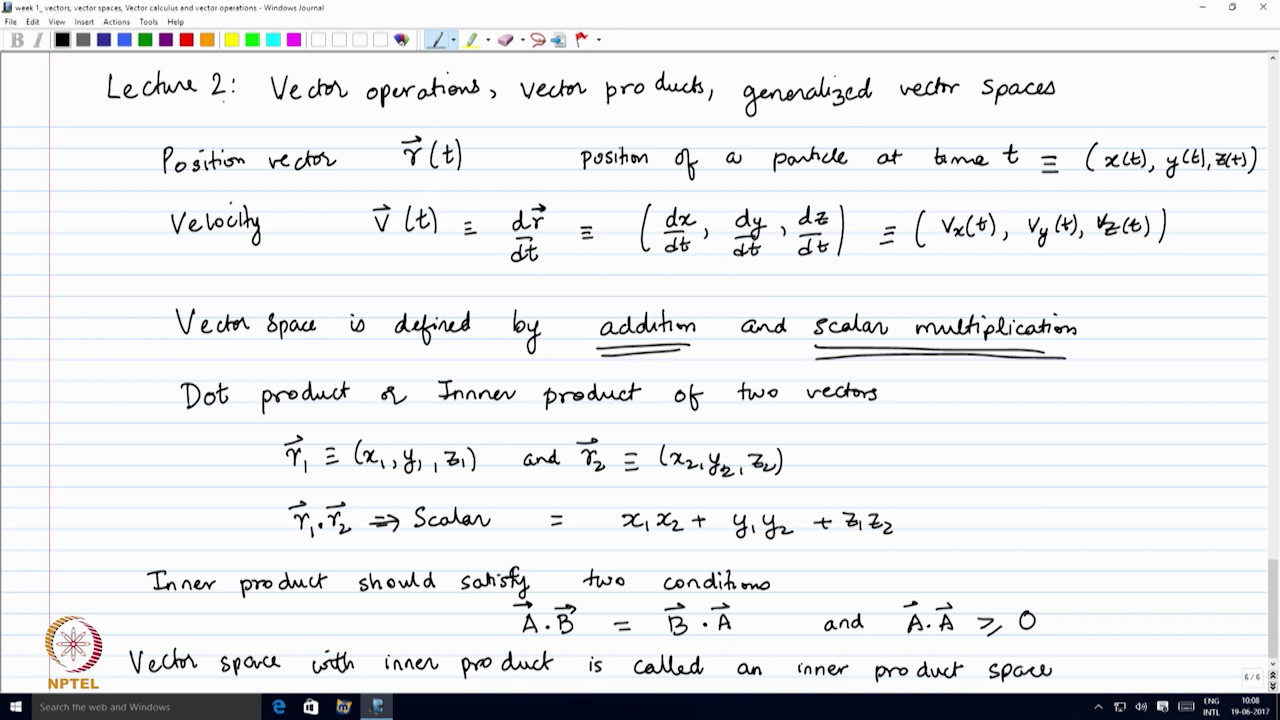 week 1_ vectors, vector spaces, Vector calculus and vector operations - Windows Journal
File Edit View Insert Actions Tools Help
B I
Lecture 2: Vector operations, vector products, generalized vector spaces
Position vector r⃗(t) position of a particle at time t ≡ (x(t), y(t), z(t))
Velocity v⃗(t) ≡ dr⃗/dt ≡ (dx/dt, dy/dt, dz/dt) ≡ (Vx(t), Vy(t), Vz(t))
Vector space is defined by addition and scalar multiplication
Dot product or Innner product of two vectors
r⃗₁ ≡ (x₁, y₁, z₁) and r⃗₂ ≡ (x₂, y₂, z₂)
r⃗₁.r⃗₂ ⇒ Scalar = x₁x₂ + y₁y₂ + z₁z₂
Inner product should satisfy two conditions
A⃗.B⃗ = B⃗.A⃗ and A⃗.A⃗ ≥ 0
Vector space with inner product is called an inner product space
NPTEL
6 / 6
Search the web and Windows
ENG
INTL
10:08
19-06-2017